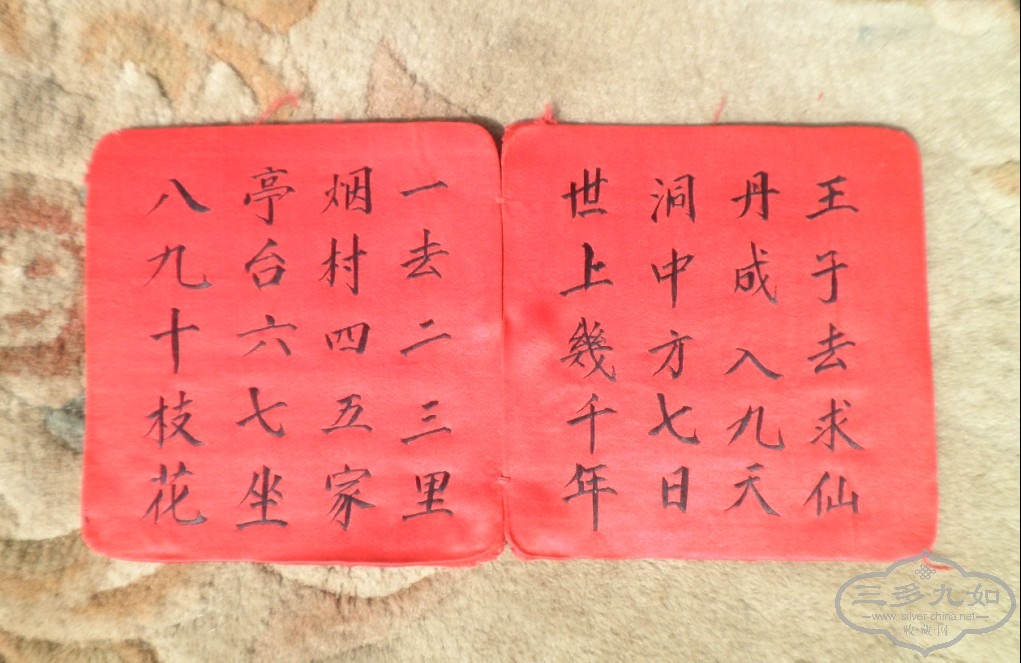 王子去求仙
丹成入九天
洞中方七日
世上幾千年
一去二三里
烟村四五家
亭台六七坐
八九十枝花
三多九如
www.silver-china.net
收藏网